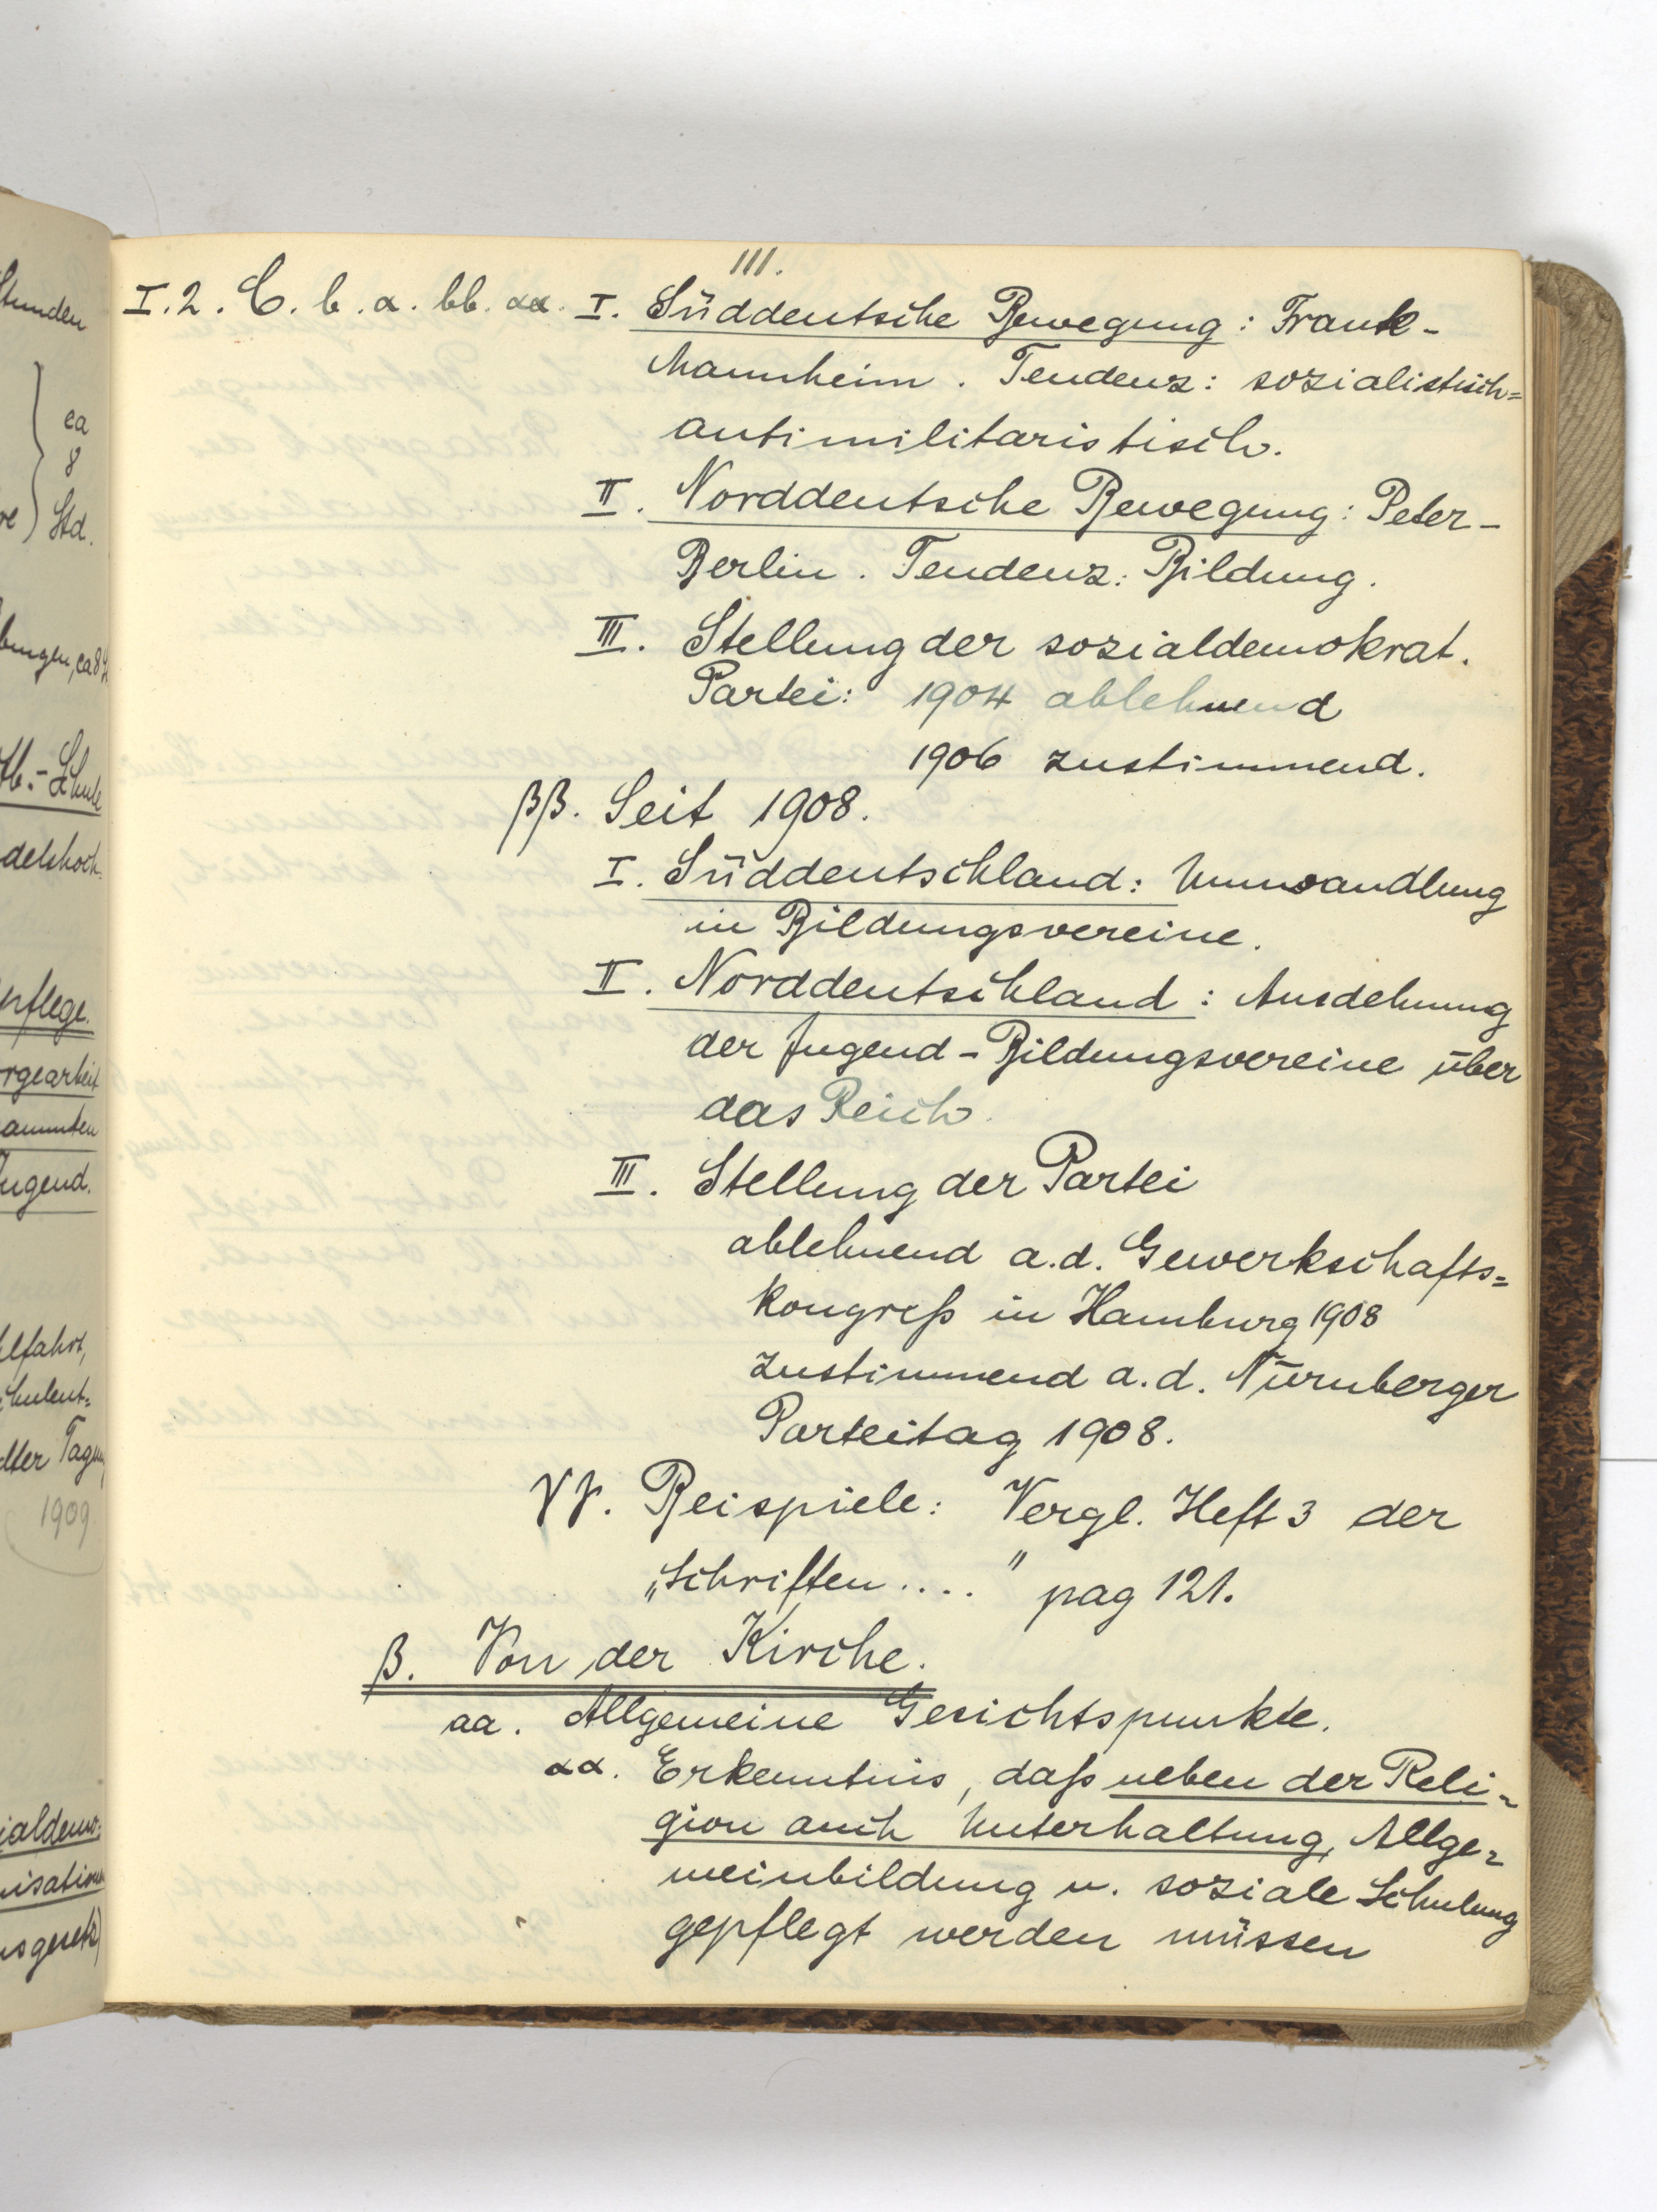 111.
I. 2. C. b. α. bb. αα. I. Süddeutsche Bewegung: Frank-
Mannheim. Tendenz: sozialistisch=
antimilitaristisch.
II. Norddeutsche Bewegung: Peter-
Berlin. Tendenz: Bildung.
III. Stellung der sozialdemokrat.
Partei: 1904 ablehnend
1906 zustimmend.
ββ. Seit 1908.
I. Süddeutschland: Umwandlung
in Bildungsvereine.
II. Norddeutschland: Ausdehnung
der Jugend-Bildungsvereine über
das Reich.
III. Stellung der Partei
ablehnend a.d. Gewerkschafts=
kongreß in Hamburg 1908
zustimmend a.d. Nürnberger
Parteitag 1908.
γγ. Beispiele: Vergl. Heft 3 der
„Schriften...." pag 121.
β. Von der Kirche.
aa. Allgemeine Gesichtspunkte.
αα. Erkenntnis, daß neben der Reli=
gion auch Unterhaltung, Allge=
meinbildung u. soziale Schulung
gepflegt werden müssen
Stunden
ca
8
Std.
pflege.
Jugend.
1909.